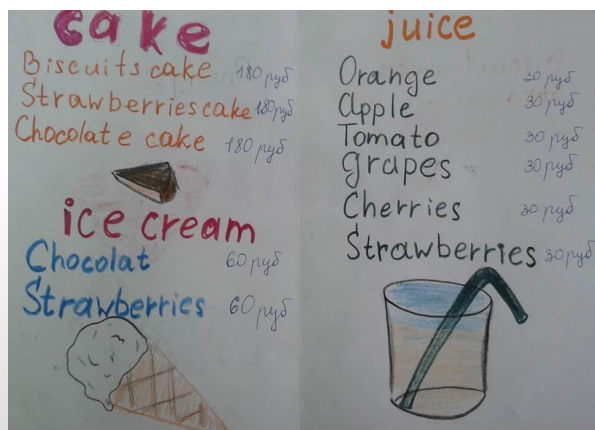 cake
Biscuits cake 180 руб
Strawberries cake 180 руб
Chocolate cake 180 руб
ice cream
Chocolat 60 руб
Strawberries 60 руб
juice
Orange 30 руб
apple 30 руб
Tomato 30 руб
grapes 30 руб
Cherries 30 руб
Strawberries 30 руб